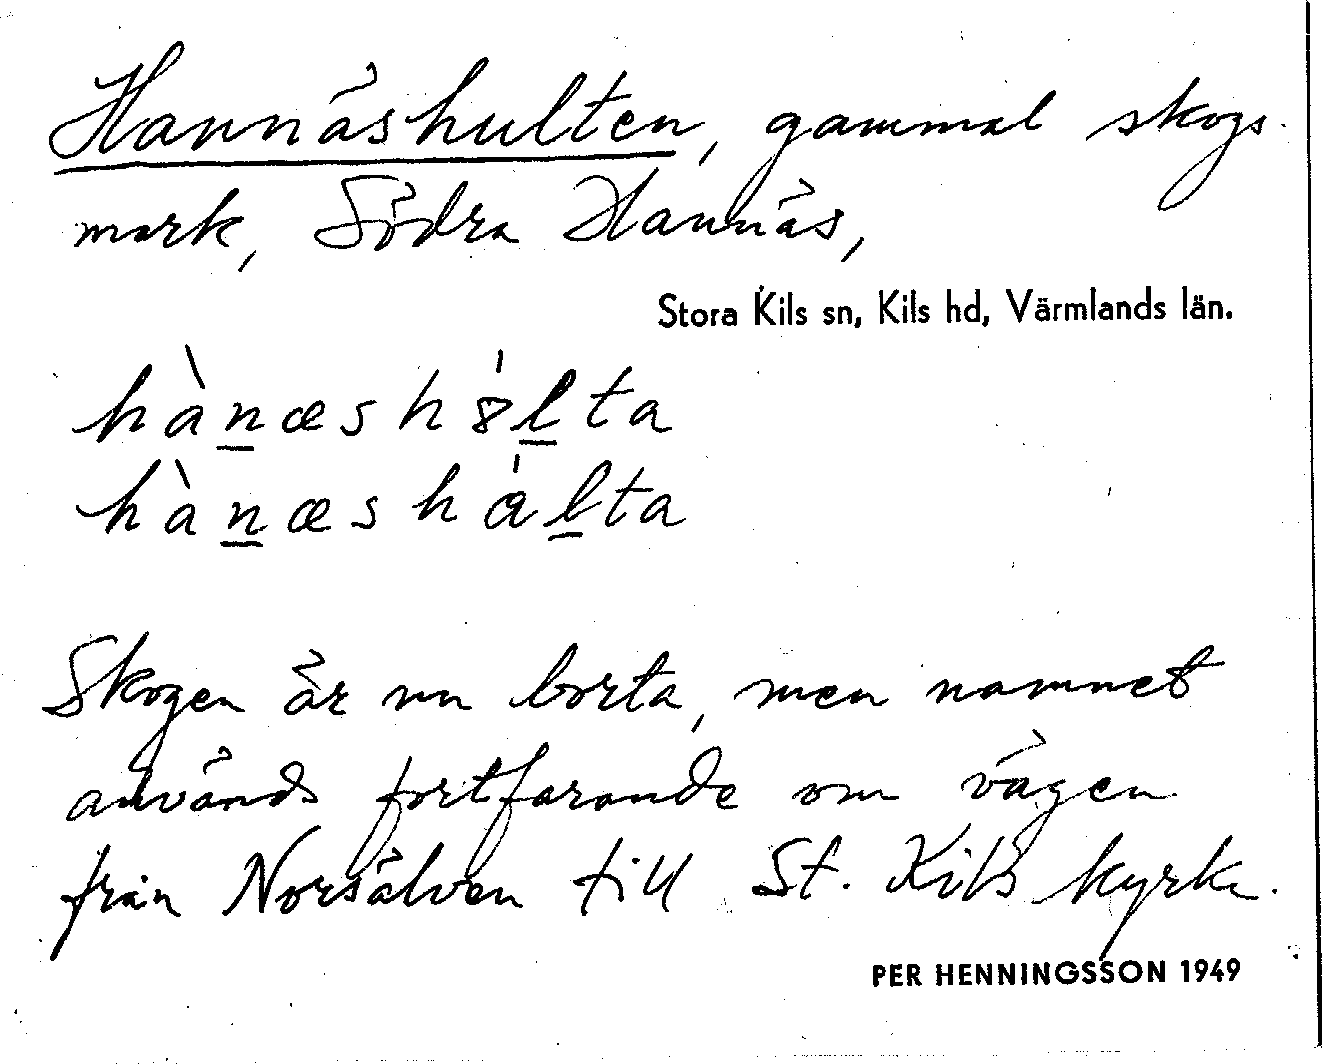 Hannäshulten, gammal skogs-
mark, Södra Hannäs,
Stora Kils sn, Kils hd, Värmlands län.
hàn̲æshȣ́l̲ta
hàn̲æshál̲ta
Skogen är nu borta, men namnet
används fortfarande om vägen
från Norsälven till St. Kils kyrka.
PER HENNINGSSON 1949